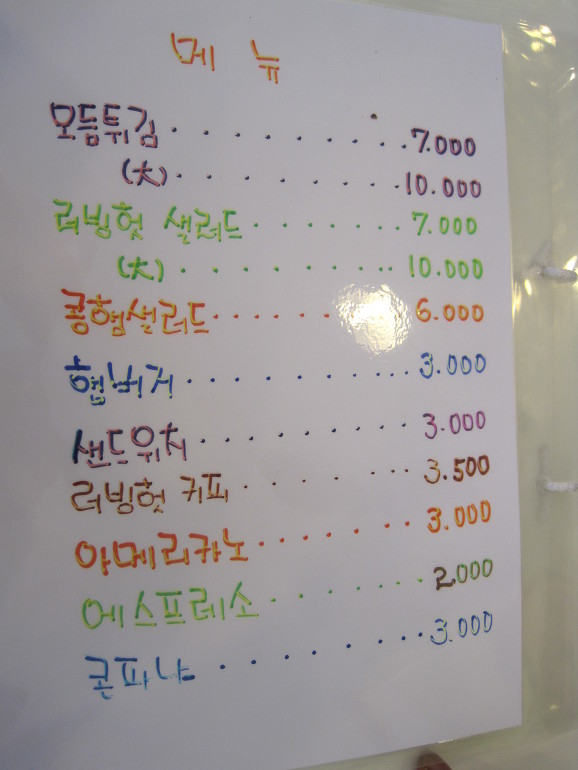 메뉴
모듬튀김 · · · · · · · · · 7.000
(大) · · · · · · · · 10.000
러빙헛 샐러드 · · · · · · · 7.000
(大) · · · · · · · · 10.000
콩햄샐러드 · · · · · · · 6.000
햄버거 · · · · · · · · · · 3.000
샌드위치 · · · · · · · · · 3.000
러빙헛 커피 · · · · · · · 3.500
아메리카노 · · · · · · · 3.000
에스프레소 · · · · · · · 2.000
콘파냐 · · · · · · · · 3.000